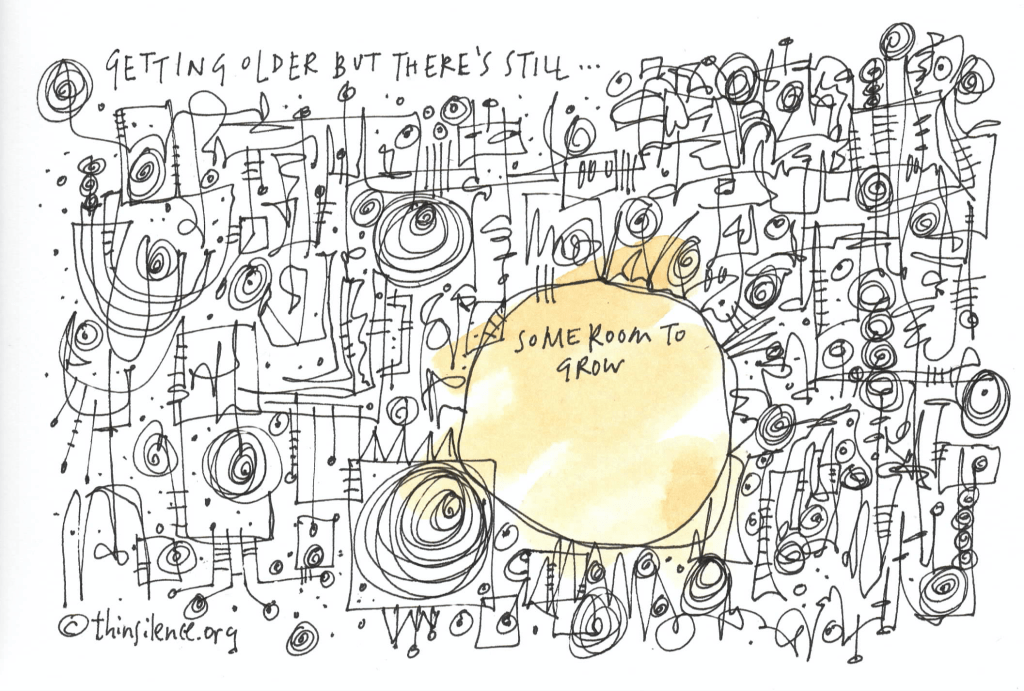 GETTING OLDER BUT THERE'S STILL...
SOME ROOM TO
GROW
© thinsilence.org